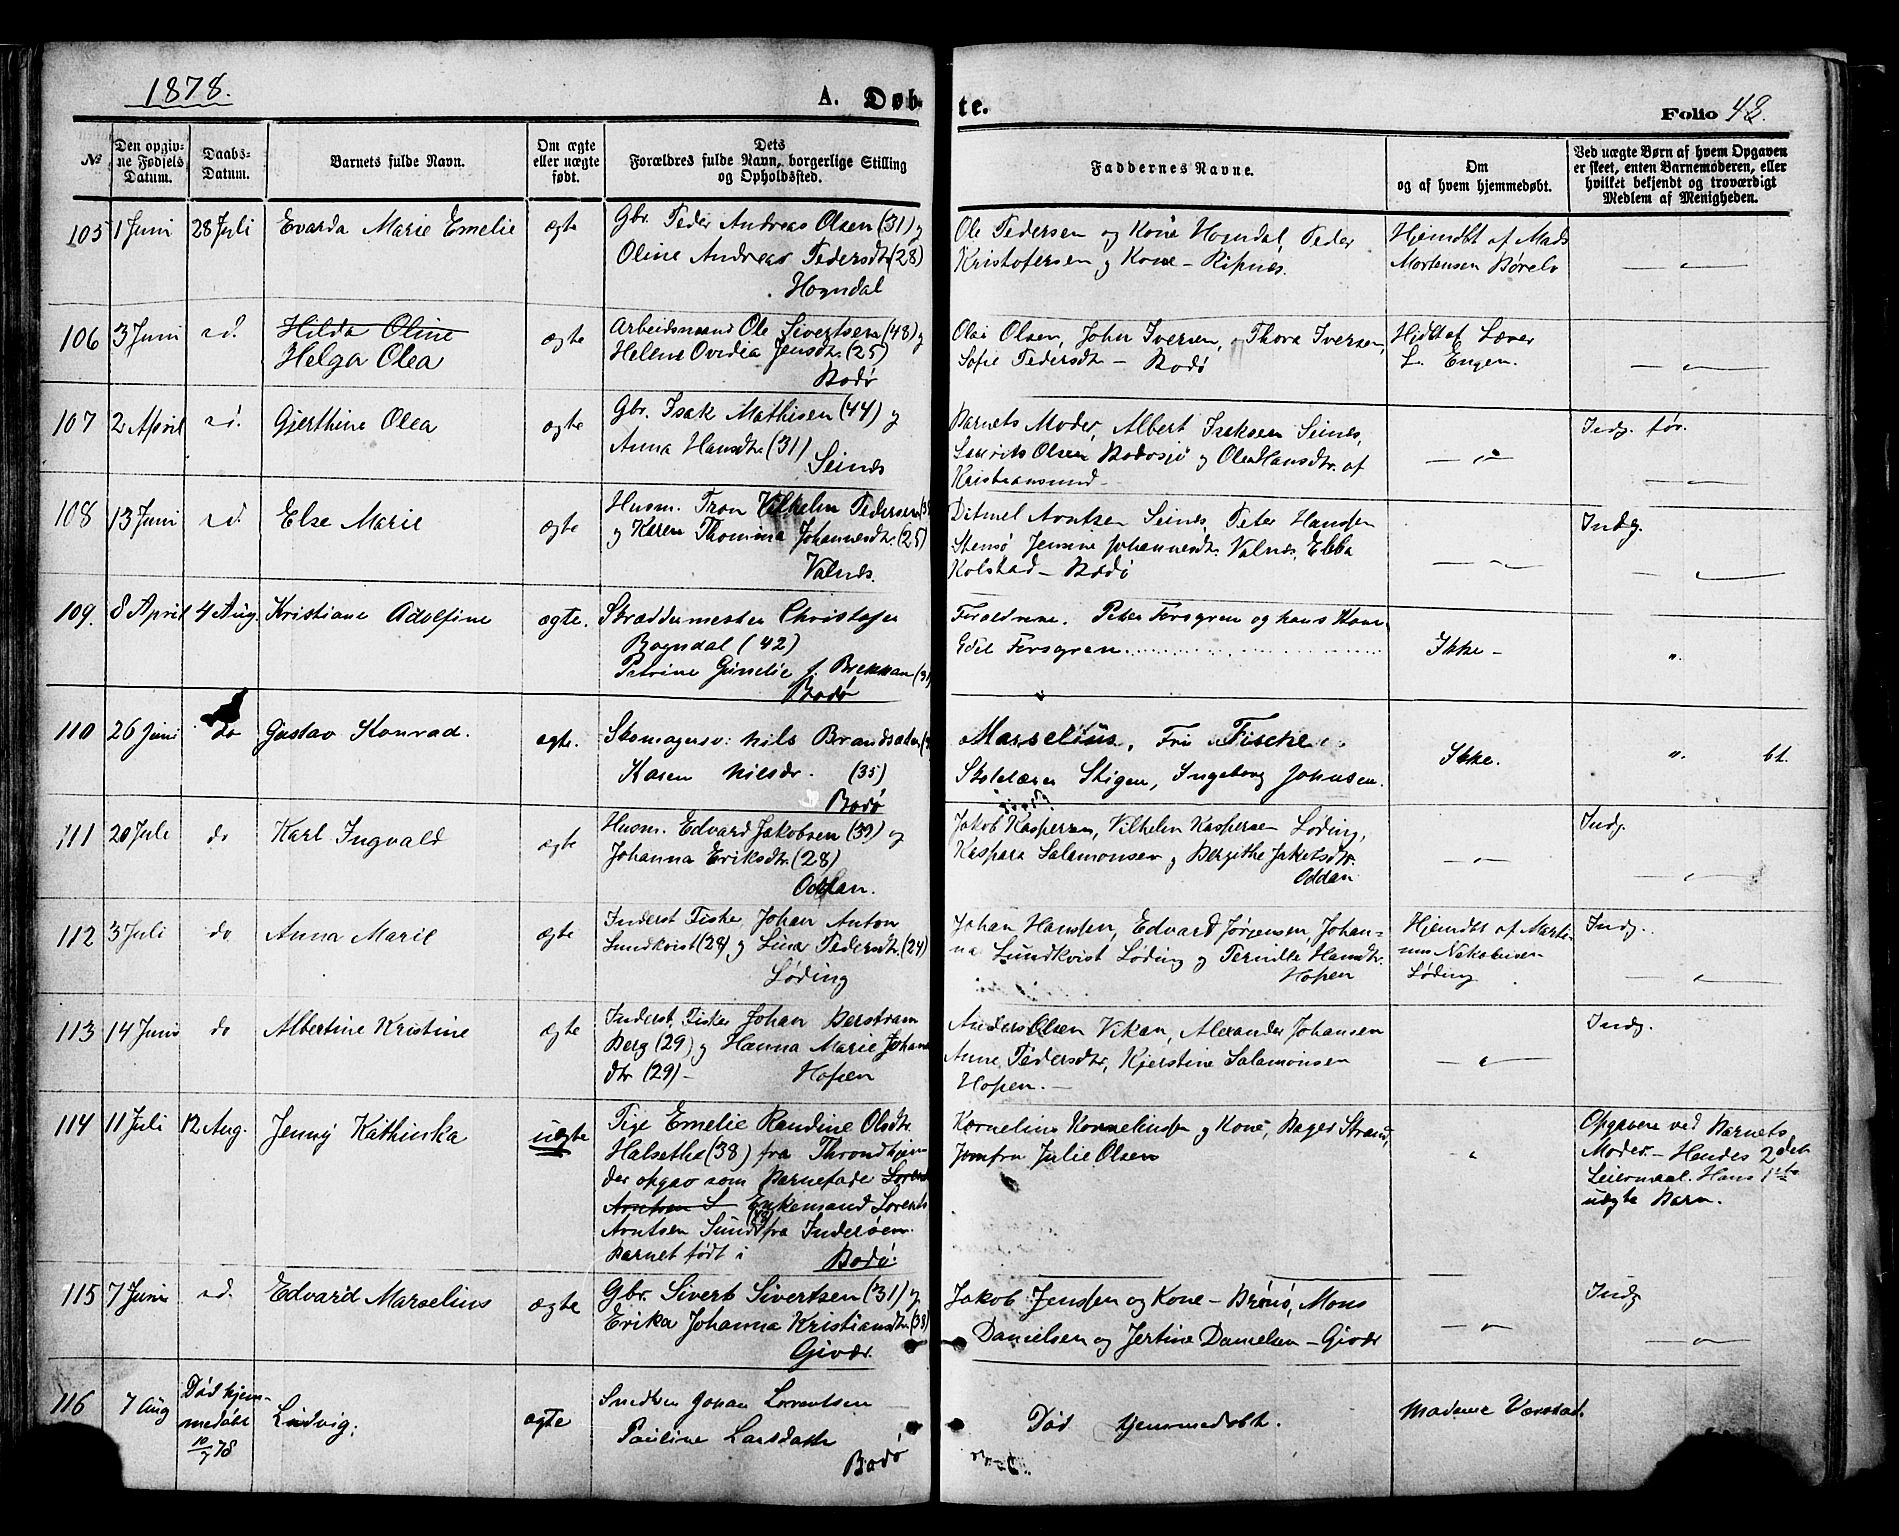 1878.
A. Døb
te.
Folio 48.
№
Den opgiv-
ne Fødsels
Datum.
Daabs-
Datum.
Barnets fulde Navn.
Om ægte
eller uægte
født.
Dets
Forældres fulde Navn, borgerlige Stilling
og Opholdssted.
Faddernes Navne.
Om
og af hvem hjemmedøbt.
Ved uægte Børn af hvem Opgaven
er skeet, enten Barnemoderen, eller
hvilket bekjendt og troværdigt
Medlem af Menigheden.
105 1 Juni 28 Juli Evarda Marie Emelie ægte
Gbr. Peder Andreas Olsen (31) og
Oline Andrea Pedersdtr (28)
Hogndal
Ole Pedersen og Kone Hogndal, Peder
Kristofersen og Kone – Ripnes.
Hjemdbt af Mads
Mortensen Børelv
106 3 Juni s.d. Hilda Oline
Helga Olea
ægte
Arbeidsmand Ole Sivertsen (48) og
Helene Ovidia Jensdtr. (25)
Bodø
Olai Olsen, John Iversen, Thora Iversen,
Sofie Pedersdtr – Bodø
Hjdbt af Lærer
L. Engen.
107 2 April s.d. Gjerthine Olea ægte
Gbr. Isak Mathisen (44) og
Anna Hansdtr (31)
Seines
Barnets Moder, Albert Isaksen Seines,
Laurits Olsen Bodøsjø og Olea Hansdtr. af
Kristiansund
Indg. før.
108 13 Juni s.d. Else Marie ægte
Husm. Tron Vilhelm Pedersen
og Karen Thomina Johannesdtr. (25)
Valnes.
Ditmel Arntsen Seines, Peter Hansen
Stensø, Jensine Johannesdtr. Valnes, Ebba
Kolstad – Bodø
Indg.
109. 8 April 4 Aug. Kristiane Adolfine ægte.
Skræddermester Christofer
Rogndal (42)
Petrine Gunelie f. Brekkan (31)
Bodø
Forældrene. Peter Forsgren og hans Kone
Edel Forsgren
Ikke –
110 26 Juni do Gustav Konrad. ægte.
Skomagersv: Nils Brandsæter
Karen Nilsdr. (35)
Bodø
Marselius, Fru Fischer,
Skolelærer Skigen, Ingeborg Johnsen.
Ikke.
bt.
111 20 Juli do Karl Ingvald ægte
Husm. Edvard Jakobsen (39) og
Johanna Eriksdtr. (28)
Oddan.
Jakob Kaspersen, Vilhelm Kaspersen Løding,
Kaspara Salamonsen og Bergithe Jakobsdtr.
Oddan
Indg.
112 3 Juli do Anna Marie ægte
Inderst Fisker Johan Anton
Lundkvist (28) og Lina Pedersdtr. (24)
Løding
Johan Hansen, Edvard Jørgensen, Johan-
na Lundkvist Løding og Pernille Hansdtr.
Hopen
Hjemdbt af Marti-
nus Jakobsen
Løding
Indg.
113 14 Juni do Albertine Kristine ægte
Inderst, Fisker Johan Berstram
Berg (29) og Hanna Marie Johans
dtr (29) –
Hopen
Anders Olsen Vikan, Alexander Johansen
Anne Pedersdtr, Kjerstine Salamonsen
Hopen. –
Indg.
114 11 Juli 12 Aug. Jenny Kathinka uægte
Pige Emelie Randine Olsdtr
Halseths (38) fra Throndhjem
der opgav som Barnefader Lorents
Arntsen S Enkemand Lorents
Arntsen Sund fra Inderøen.
Barnet født i Bodø.
Kornelius Kornelinssen og Kone, Bager Strand,
Jomfru Julie Olsen
Opgaven ved Barnets
Moder – Hendes 2det
Leiermaal. Hans 1ste
uægte Barn.
115 7 Juni s.d. Edvard Marselius ægte
Gbr. Sivert Sivertsen (31) og
Erika Johanna Kristiansdtr (38)
Givær.
Jakob Jenssen og Kone – Brønø, Mons
Danielsen og Jertine Danielsen – Givær
Indg
116 7 Aug Død hjem-
medøbt
10/7 78
Ludvig. ægte
Smedsv Johan Lorentsen
Pauline Larsdatr
Bodø
Død hjemmedøbt.
Madame Værstad.